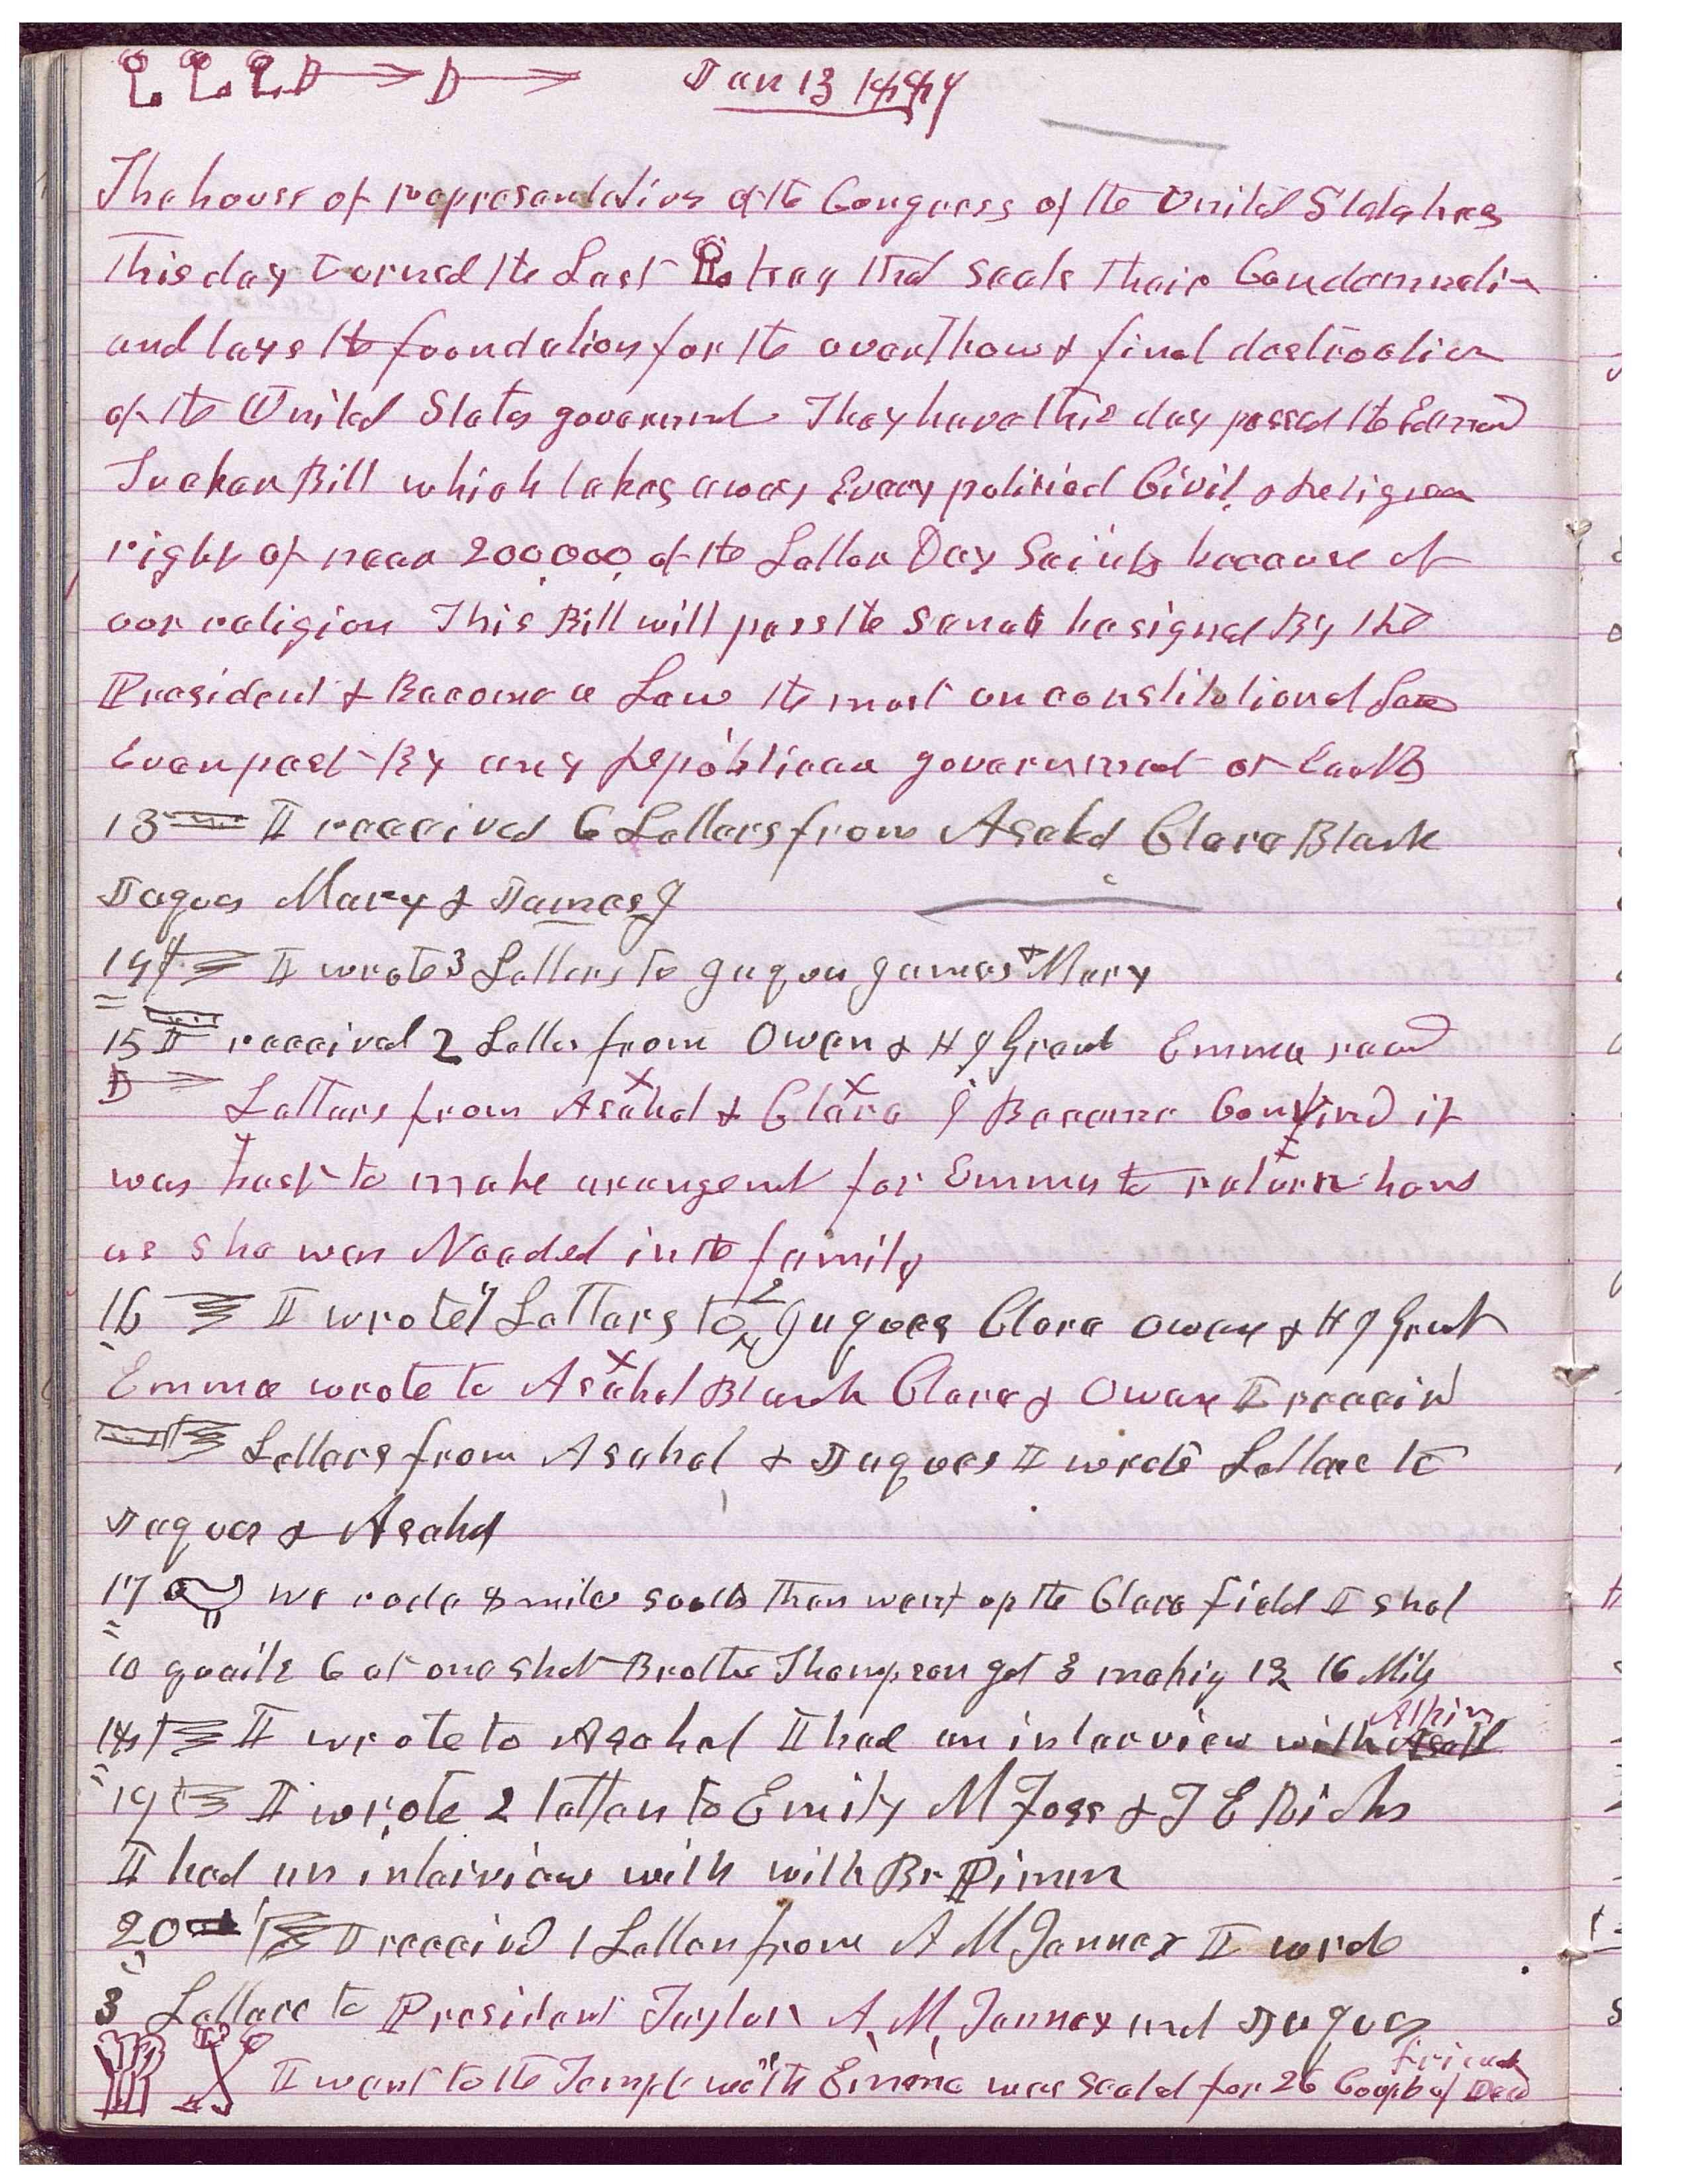 Jan 13 1887
The house of representatives of the Congress of the United States has
this day turned the Last key that seals their Condemnati-
and lays the foundation for the overthrow & final destruction
of the United States government They have this day passed the Edmond
Tucker Bill which takes away Every political Civil & Religious
right of near 200,000, of the Latter Day Saints because of
our religion This Bill will pass the Senate be signed By the
President & Become a Law the most unconstitutional Law
Ever past By any Republican government on Earth
13 I received 6 Letters from Asahel Clara Blank
Jaques Mary & James J
14 I wrote 3 Letters to Jaques James & Mary
15 I received 2 Letters from Owen & H J Grant Emma recd
Letters from Asahel & Clara I Became Convind it
was best to make arangemt for Emma to return home
as she was Needed in the family
16 I wrote 4 Letters to 2 Jaques Clara Owen & H J Grant
Emma wrote to Asahel Blank Clara & Owen I receivd
Letters from Asahel & Jaques I wrote Letters to
Jaques & Asahel
17 we rode 8 miles south then went up the Clara field I shot
10 quails 6 at one shot Brother Thompson got 3 making 13 16 Mils
18 I wrote to Asahel I had an interview with Alpin
19 I wrote 2 letters to Emily M Foss & F E Richs
I had an interview with with Br Pimm
20 I receivd 1 Letter from A M Tenney I wrote
3 Letters to President Taylor A, M, Tenney and Jaques
I went to the Temple with Emma was sealed for 26 Coupls of Dead friends